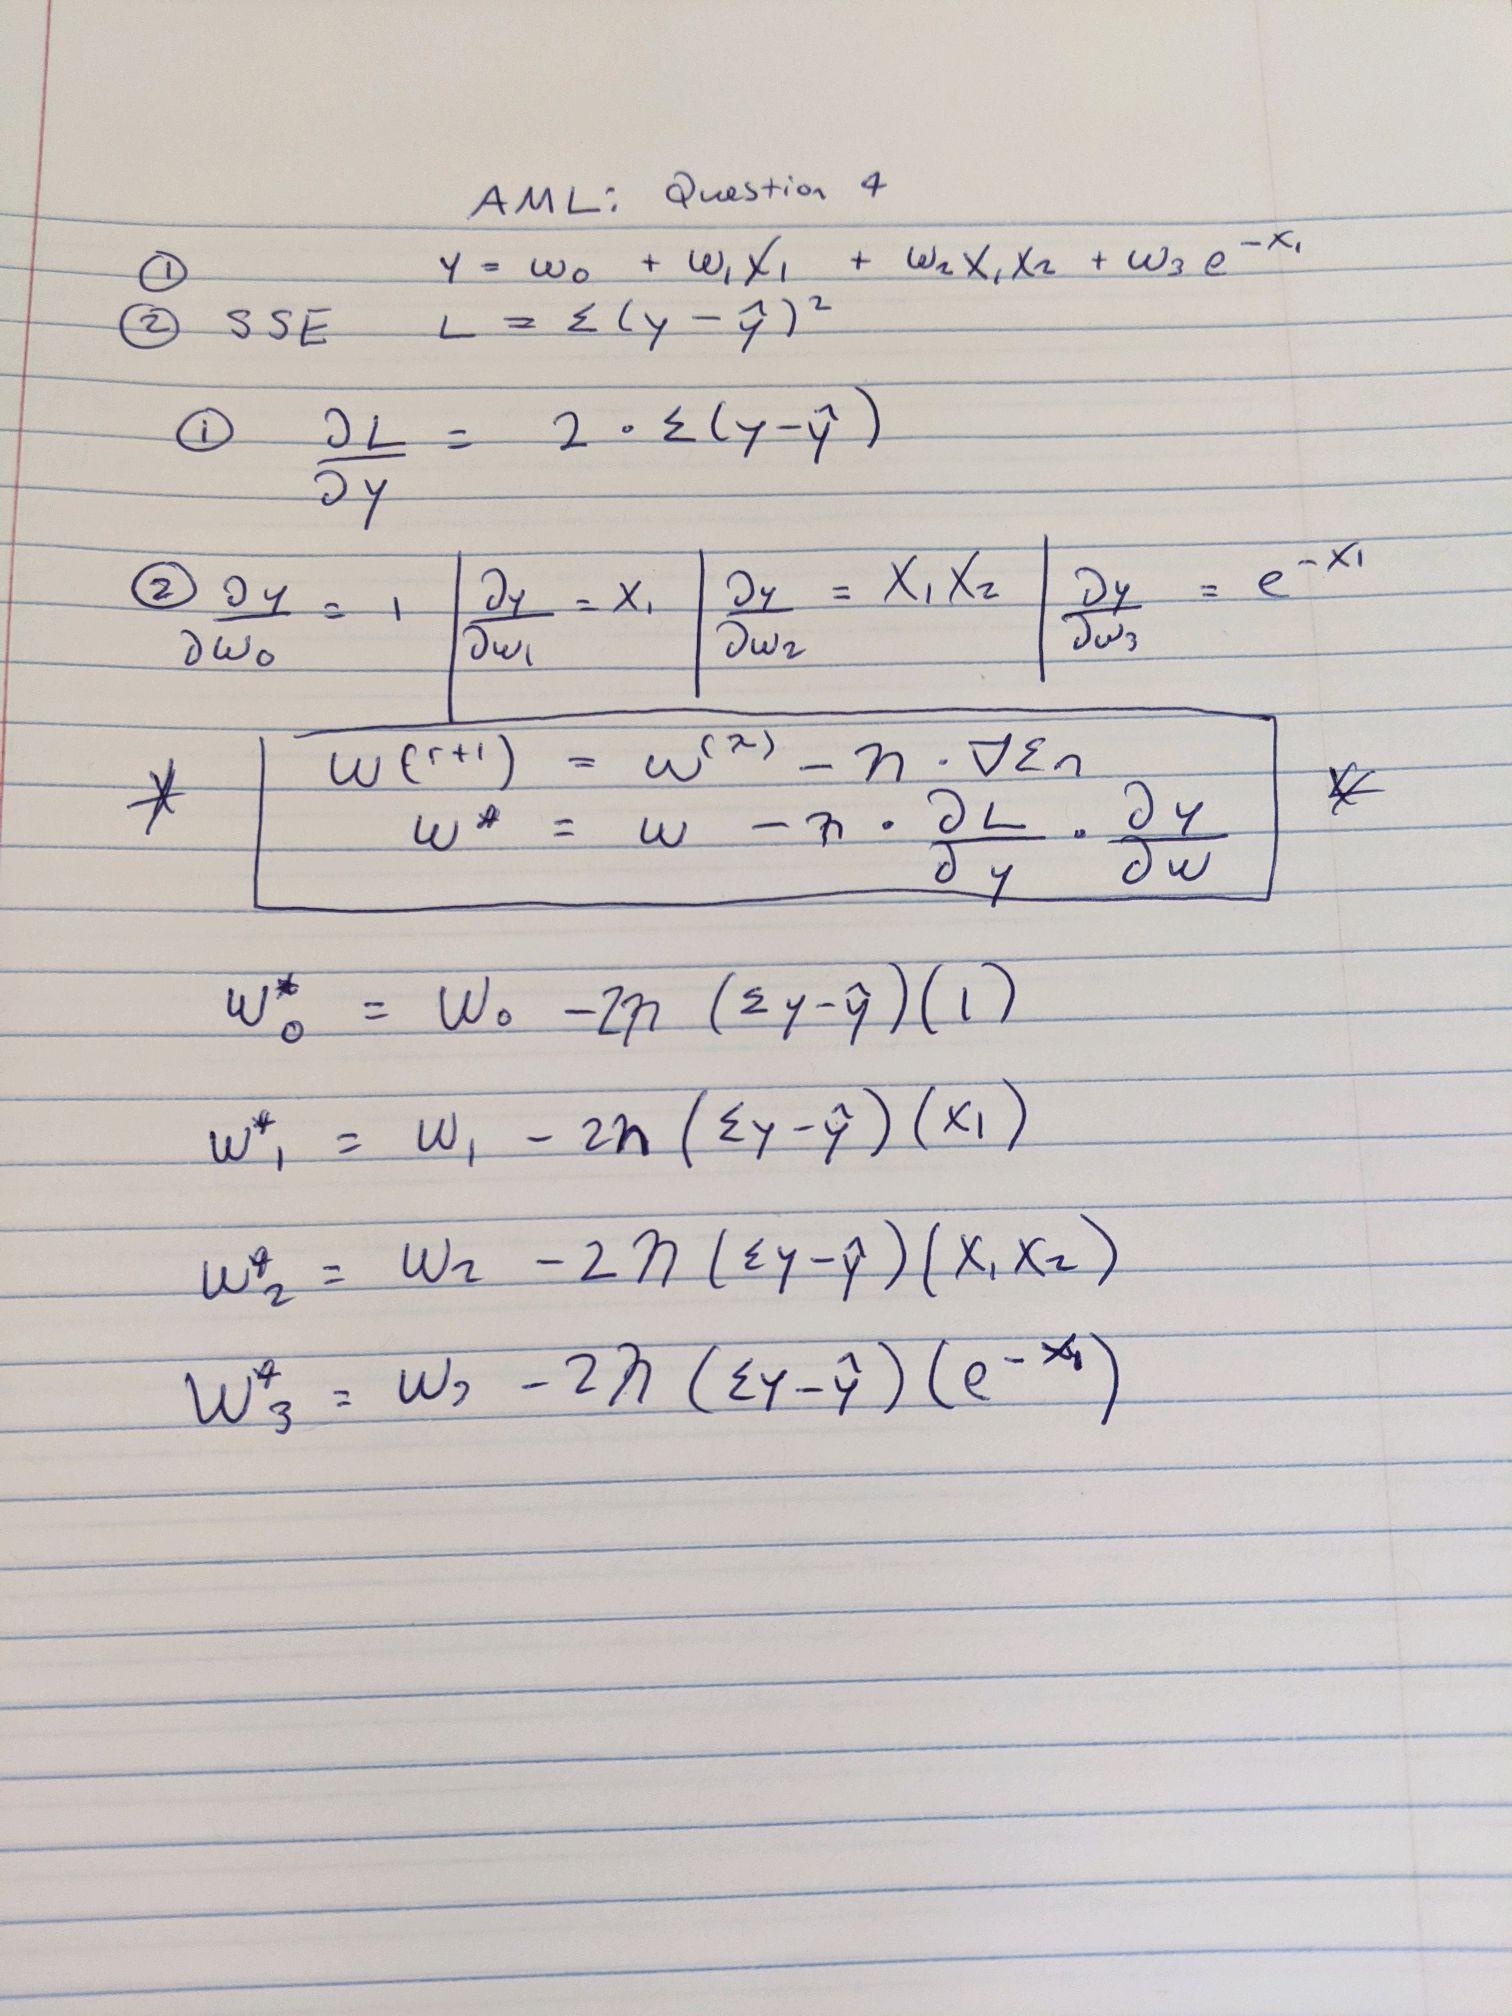 AML: Question 4
① y = w₀ + w₁x₁ + w₂x₁x₂ + w₃e^{-x₁}
② SSE L = Σ(y - ŷ)²
① ∂L/∂y = 2 · Σ(y-ŷ)
② ∂y/∂w₀ = 1 | ∂y/∂w₁ = x₁ | ∂y/∂w₂ = x₁x₂ | ∂y/∂w₃ = e^{-x₁}
* w^{(τ+1)} = w^{(τ)} - η · ∇Eₙ *
w* = w - η · ∂L/∂y · ∂y/∂w
w*₀ = w₀ - 2η (Σy-ŷ)(1)
w*₁ = w₁ - 2η (Σy-ŷ)(x₁)
w*₂ = w₂ - 2η (Σy-ŷ)(x₁x₂)
w*₃ = w₃ - 2η (Σy-ŷ)(e^{-x₁})